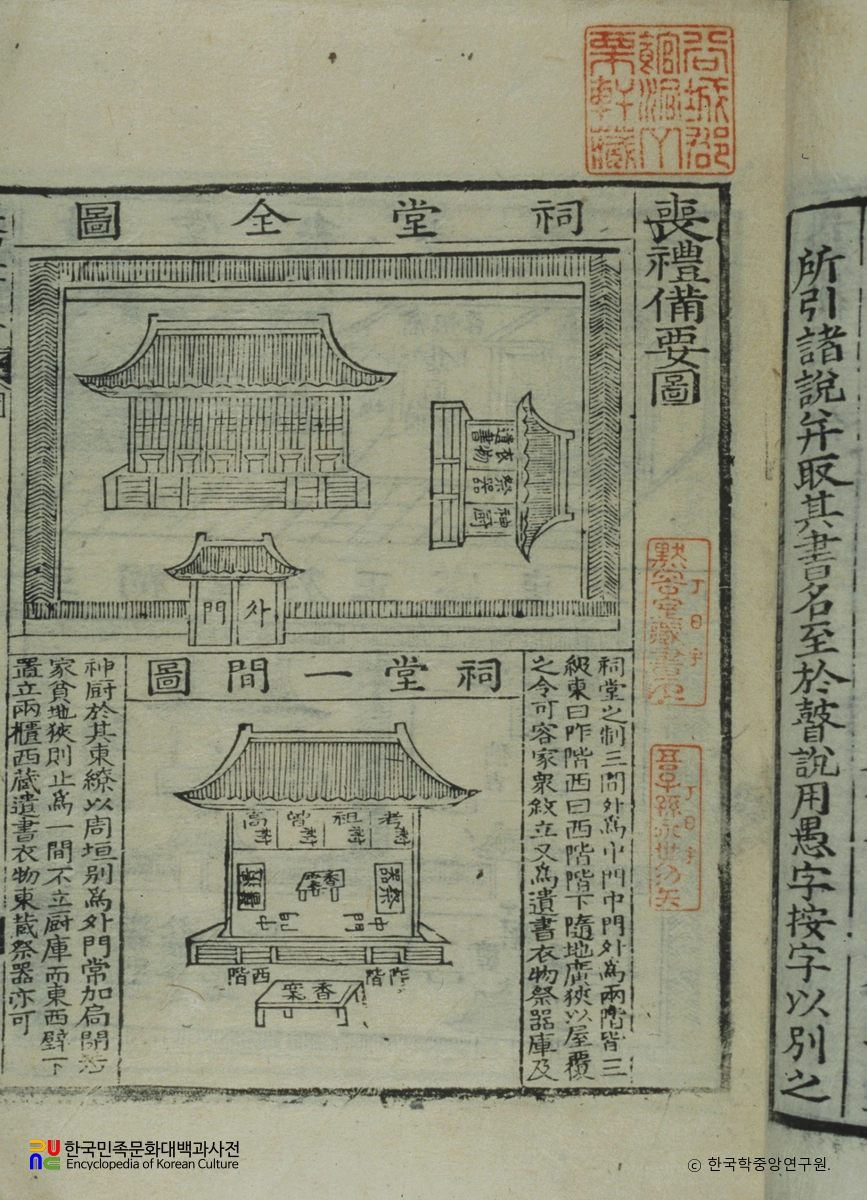 所引諸說并取其書名至於瞽說用愚字按字以別之
喪禮備要圖
祠堂全圖
遺書
衣物
祭器
神廚
外門
祠堂之制三間外爲中門中門外爲兩階皆三
級東曰阼階西曰西階階下隨地廣狹以屋覆
之令可容家衆敘立又爲遺書衣物祭器庫及
祠堂一間圖
考
祖
曾
高
祭器
香案
中門
阼階
西階
香案
神廚於其東繚以周垣別爲外門常加扃閉若
家貧地狹則止爲一間不立廚庫而東西壁下
置立兩櫃西藏遺書衣物東藏祭器亦可
한국민족문화대백과사전
Encyclopedia of Korean Culture
ⓒ 한국학중앙연구원.